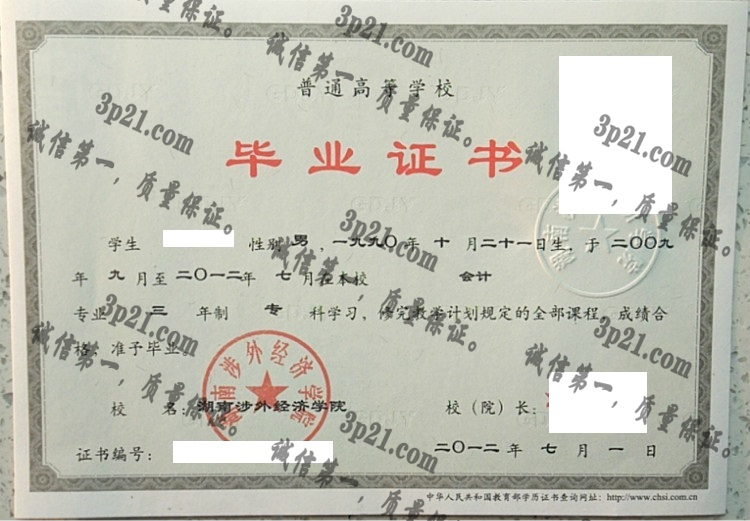 普通高等学校
毕业证书
学生 性别 男，一九九〇年 十 月二十一日生，于 二〇〇九
年 九 月至 二〇一二年 七 月在本校 会计
专业 三 年制 专 科学习，修完教学计划规定的全部课程，成绩合
格，准予毕业。
湖南涉外经济学院
校 名：湖南涉外经济学院 校（院）长：
证书编号： 二〇一二 年 七 月 一 日
中华人民共和国教育部学历证书查询网址：http://www.chsi.com.cn
3p21.com
诚信第一，质量保证。
3p21.com
诚信第一，质量保证。
3p21.com
诚信第一，质量保证。
3p21.com
诚信第一，质量保证。
3p21.com
诚信第一，质量保证。
3p21.com
诚信第一，质量保证。
3p21.com
诚信第一，质量保证。